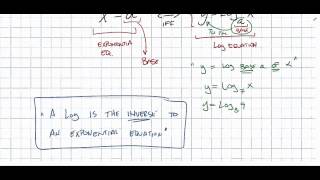 x = a
IFF
y = Log a
TO THE
BASE
EXPONENTIAL
EQ.
BASE
LOG EQUATION
"y = Log BASE a OF x"
y = Log₇ x
y = Log₃ 9
"A LOG IS THE INVERSE TO
AN EXPONENTIAL EQUATION"